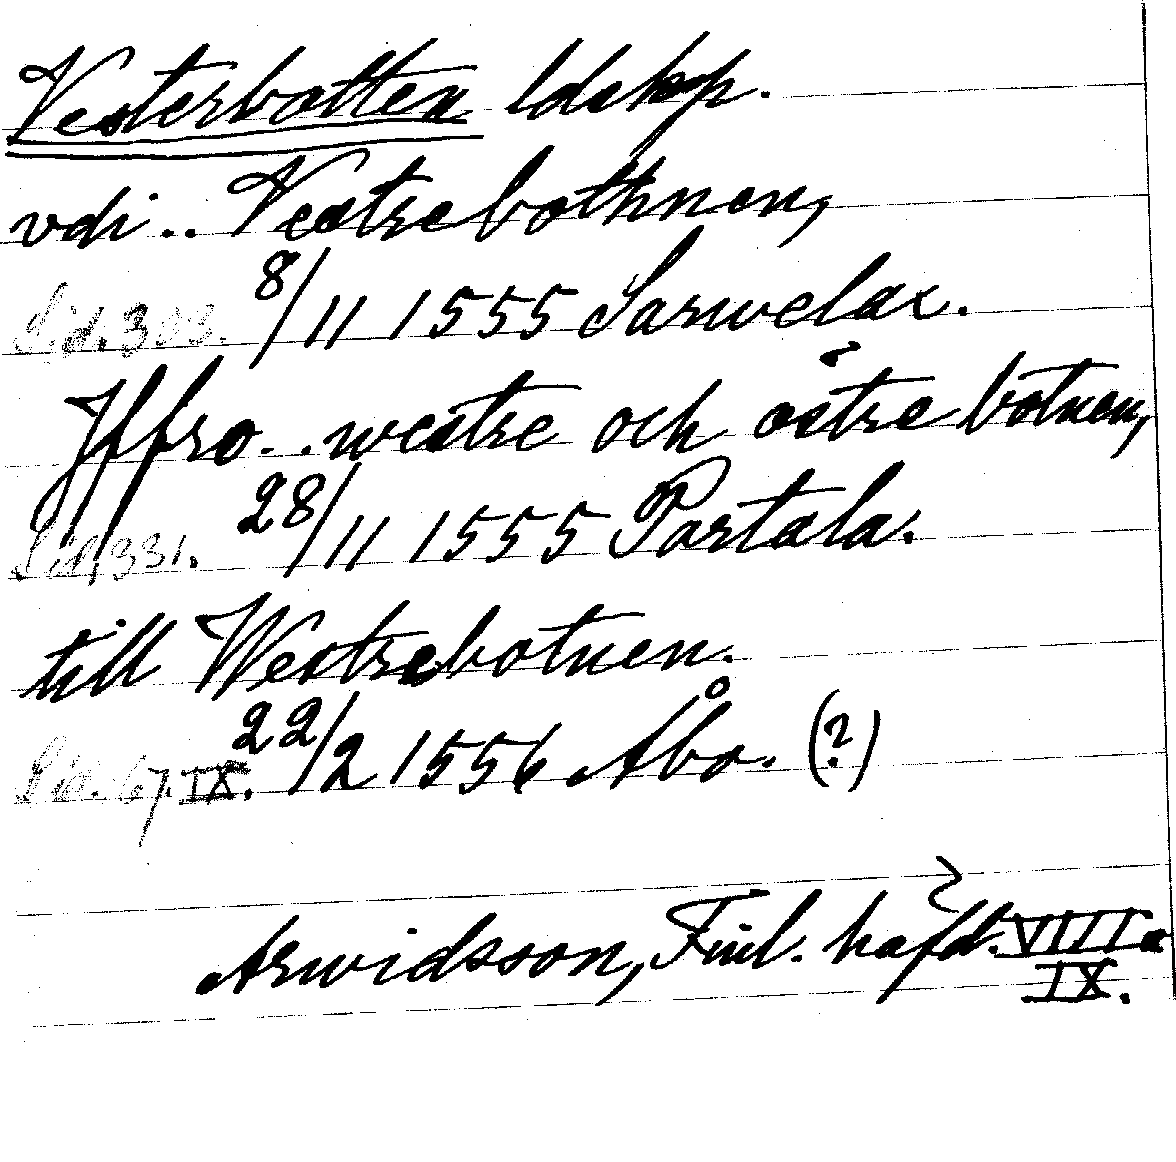 Vesterbotten ldskp.
vdi .. Vestrebothnen,
Sid. 303. 8/11 1555 Sarwelax.
Jffro . . westre och östre botnen,
Sid. 331. 28/11 1555 Partala.
till Westrebotnen.
Sid. 67. IX. 22/2 1556 Åbo. (?)
Arwidsson, Finl. häfd. VIII a
IX.